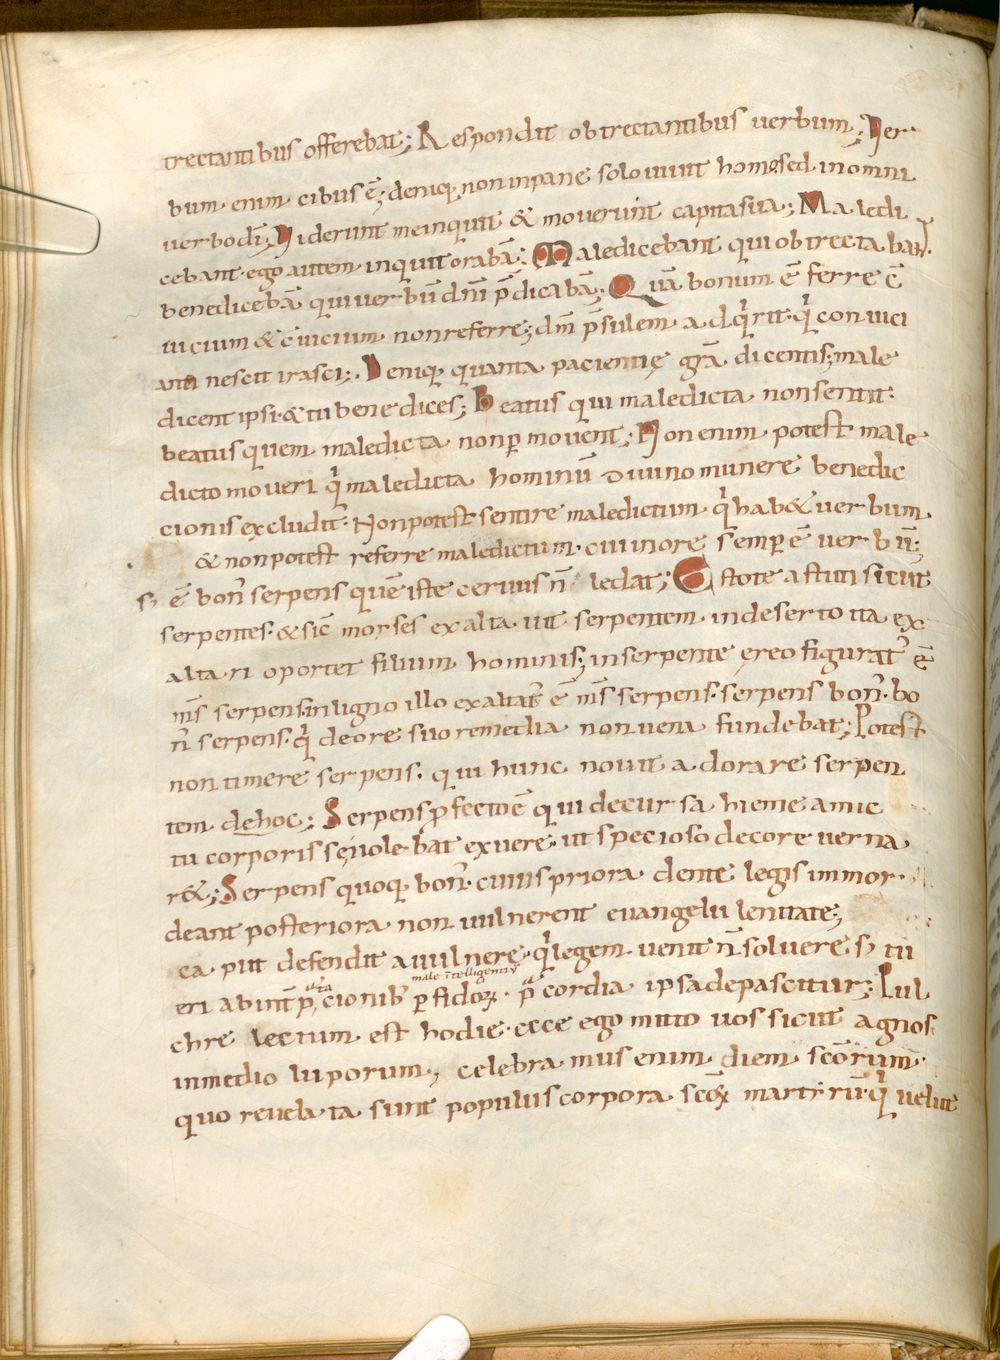 trectantibus offerebat; Respondit obtrectantibus uerbum; Ver
bum enim cibus ē; deniq; non inpane solo uiuit homo sed inomni
uerbo dī; Viderunt me inquit & mouerunt capita sua; Maledi
cebant ego autem inquit orabā; Maledicebant qui obtrectabant.
benedicebā qui uerbū dn̄i p̄dicabā. Quā bonum ē ferre c̄
uicium & c̄uicium non referre; dn̄i p̄sulem adq̇rit. q̇ conuici
anti nescit irasci; Deniq; quanta pacientię grā dicentis; male
dicent ipsi & tu benedices; Beatus qui maledicta non sentit.
beatus quem maledicta non ꝑmouent; Non enim potest male
dicto moueri q̇ maledicta hominū diuino munere benedic
cionis excludit. Non potest sentire maledictum q̇ hab& uerbum
& non potest referre maledictum cui in ore semꝑ ē uerbū;
s; ē bon' serpens quē iste ceruus n̄ ledat; Estote astuti sicut
serpentes. & sic moyses exaltauit serpentem indeserto ita ex
altari oportet filium hominis; inserpente ęreo figurat' ē
m̄s serpens. inligno illo exaltat' ē m̄s serpens. serpens bon'. bo
n' serpens. q̇ de ore suo remedia non uena fundebat; Potest
non timere serpens. qui hunc nouit adorare serpen
tem dehoc; Serpens ꝓfecto ē qui decursa hieme amic
tu corporis se uolebat exuere. ut specioso decore uerna
r&; Serpens quoq; bon'. cuius priora dente legis immor
deant posteriora non uulnerent euangelii lenitate;
ea put defendit a uulnere. q̇ legem uenit n̄ soluere s; tu
male ītelligentiū
eri ab int̄p̄tacionib' ꝑfidoꝝ. p̄cordia ipsa depascitur; Pul
chre lectum est hodie. ecce ego mitto uos sicut agnos
inmedio luporum, celebramus enim diem scōrum
quo reuelata sunt populus corpora scōꝝ martirū. q̇ uelut